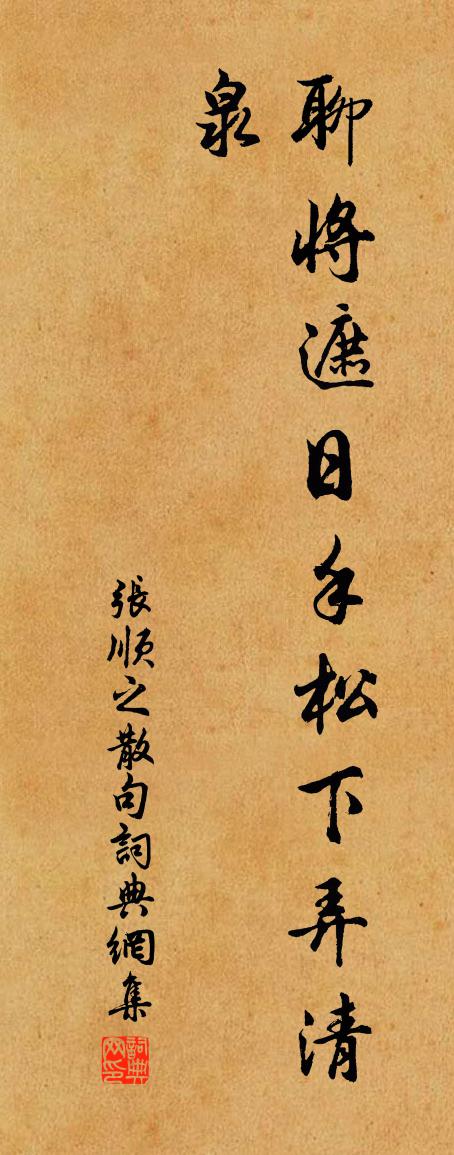 聊將遮日手松下弄清
泉
張順之散句詞典網集
詞典網印